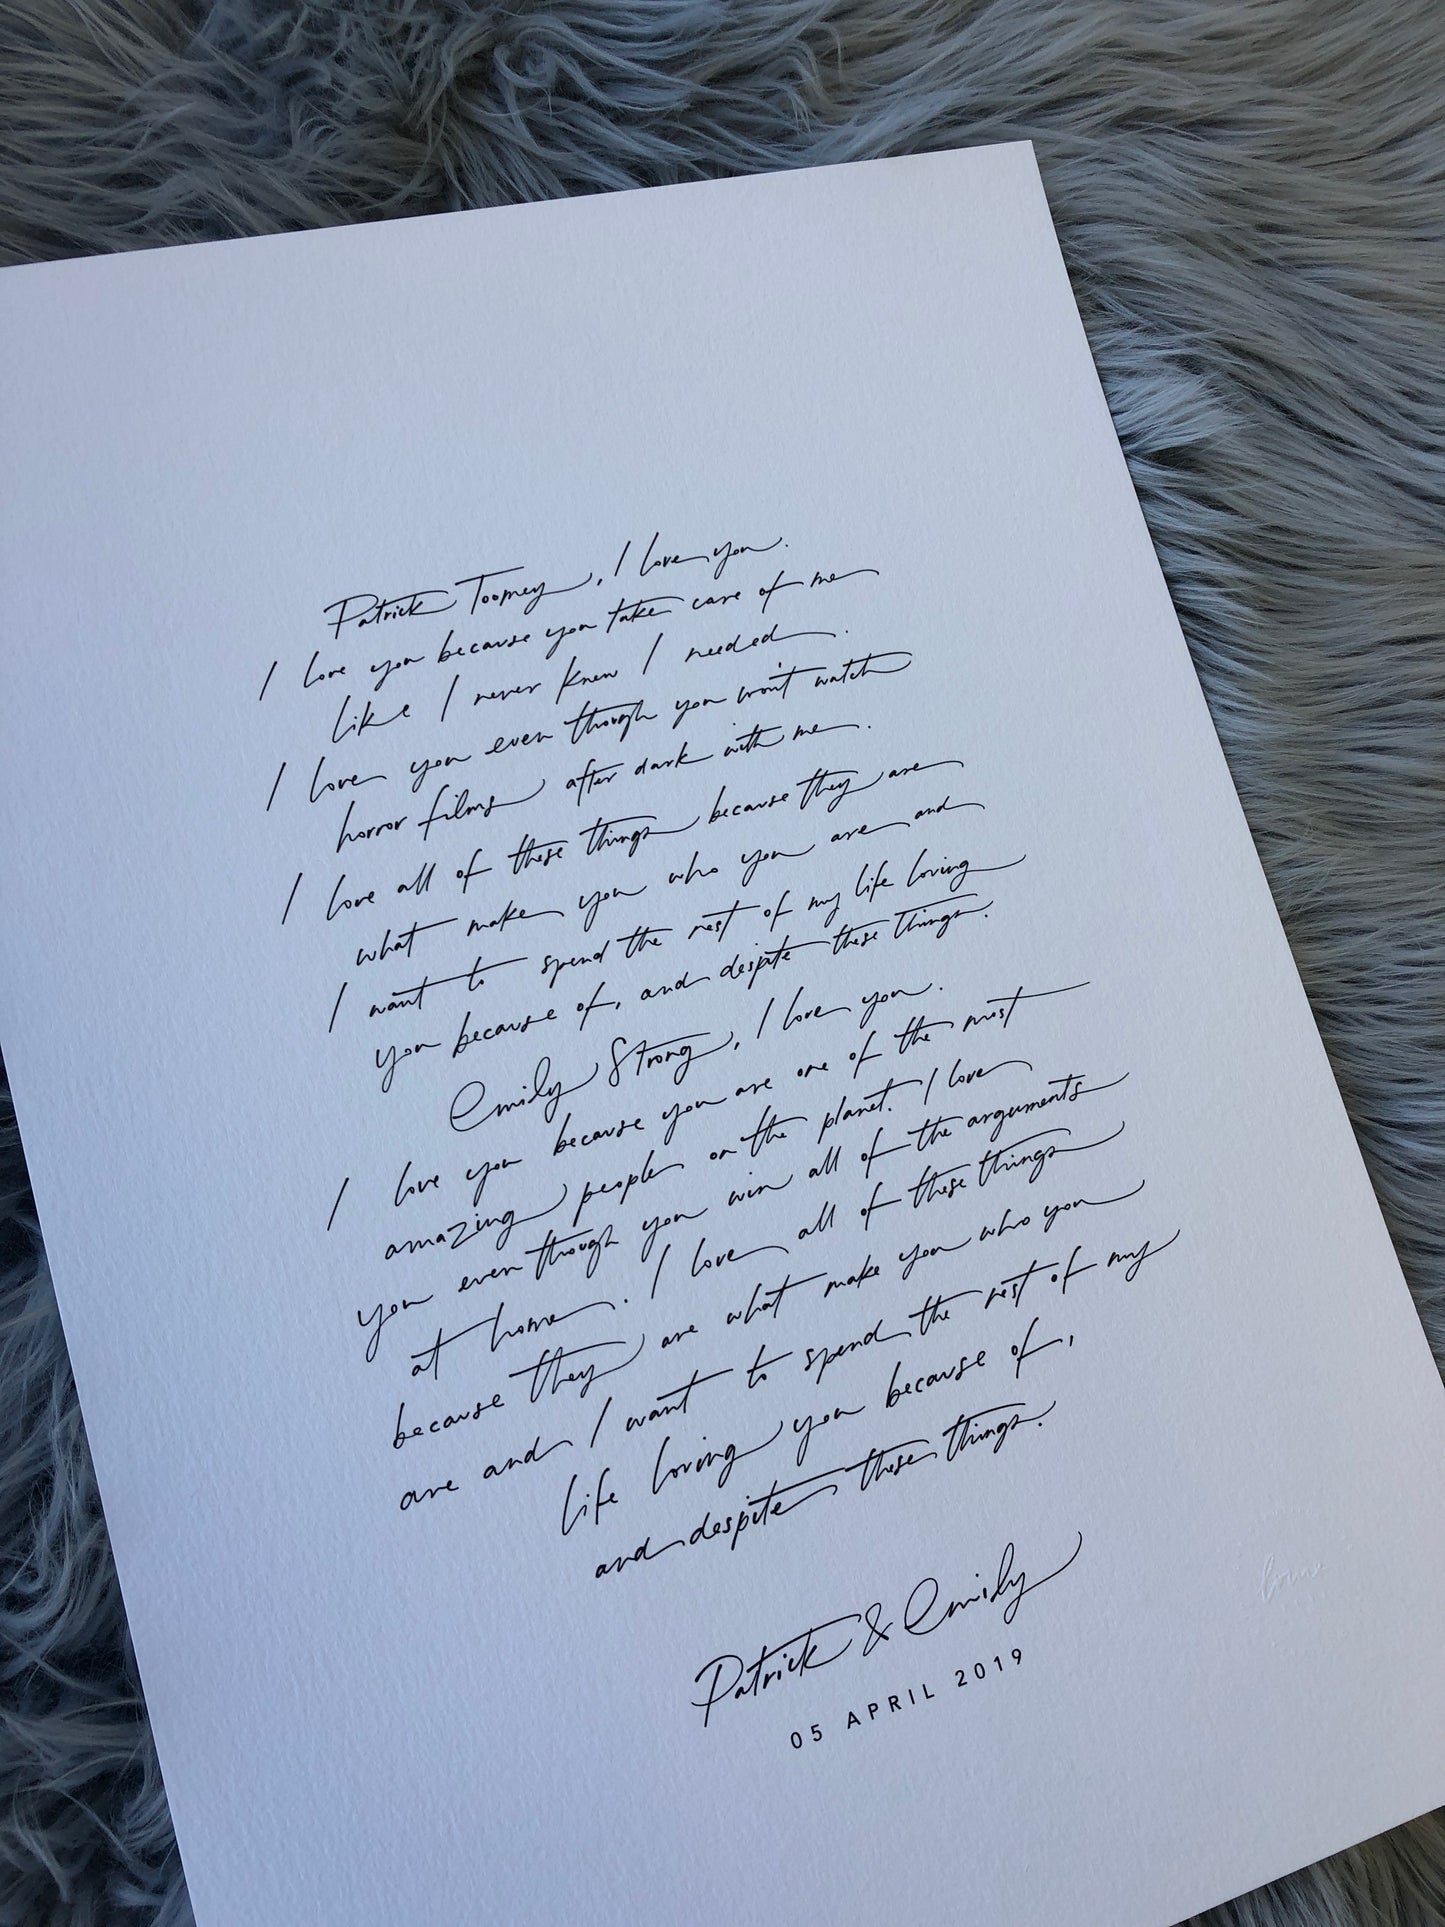 Patrick Toomey, I love you.
I love you because you take care of me
like I never knew I needed.
I love you even though you won't watch
horror films after dark with me.
I love all of these things because they are
what make you who you are and
I want to spend the rest of my life loving
you because of, and despite these things.
Emily Strong, I love you.
I love you because you are one of the most
amazing people on the planet. I love
you even though you win all of the arguments
at home. I love all of these things
because they are what make you who you
are and I want to spend the rest of my
life loving you because of,
and despite these things.
Patrick & Emily
05 APRIL 2019